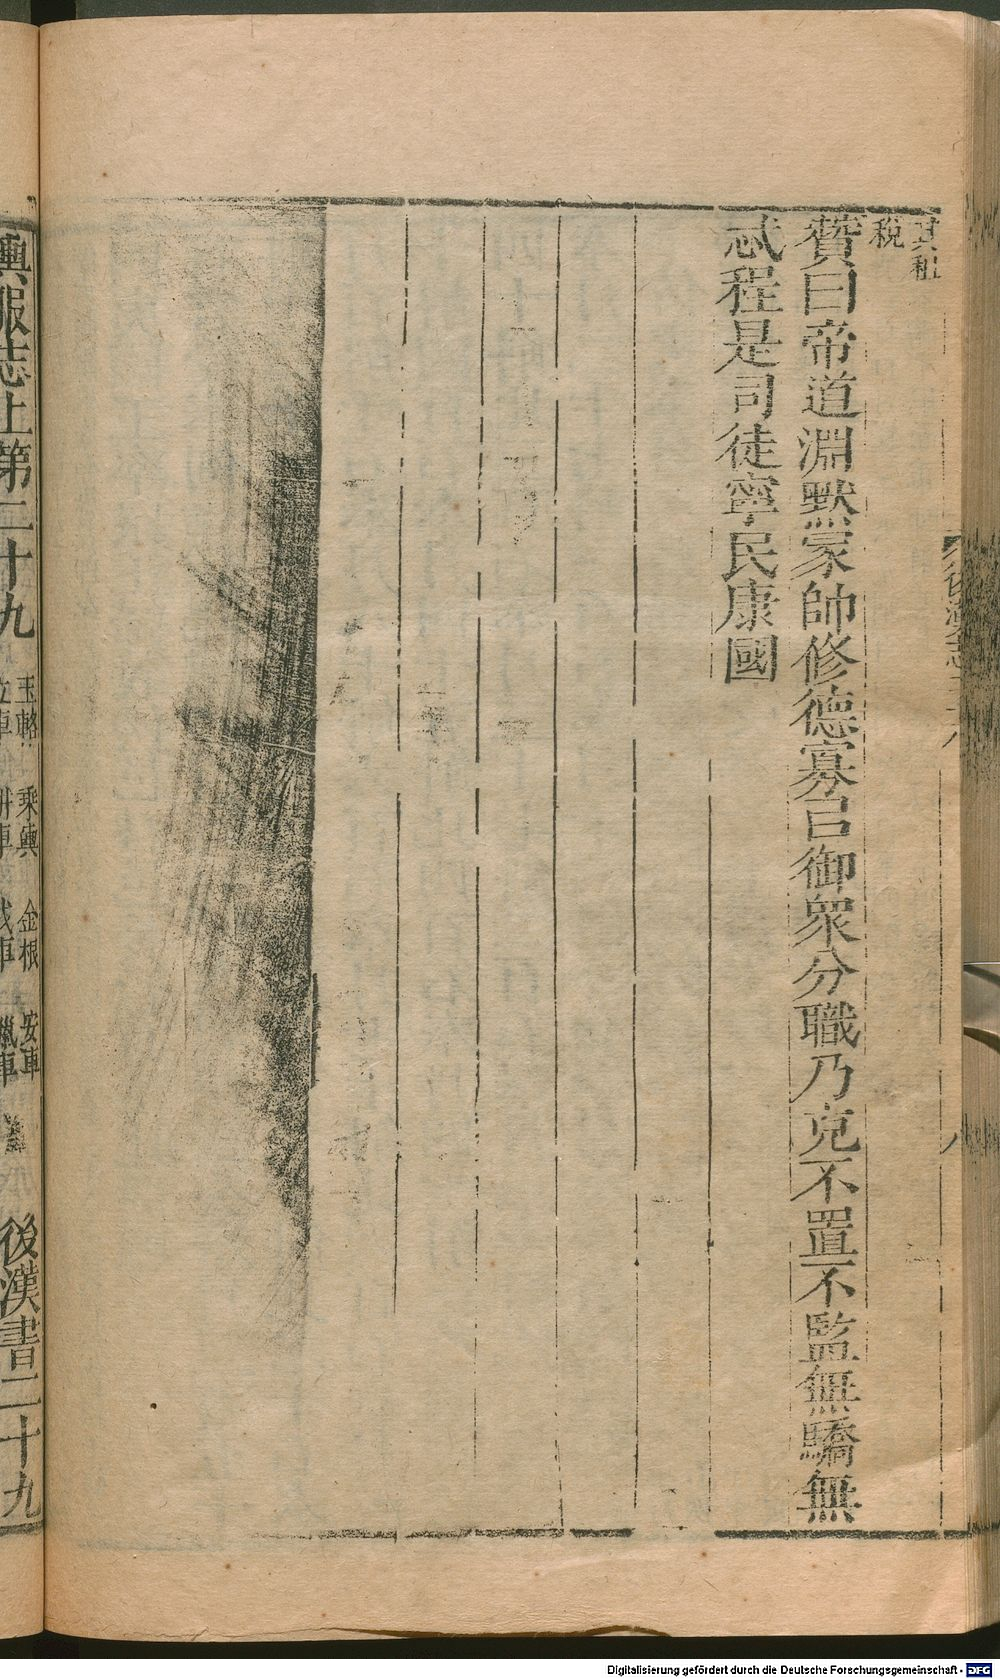 其租
稅
贊曰帝道淵默冢帥修德寡已御衆分職乃克不置不監無驕無
忒程是司徒寧民康國
後漢志二十八
八
輿服志上第二十九
玉輅 乘輿 金根 安車
立車 耕車 戎車 獵車
後漢書二十九
Digitalisierung gefördert durch die Deutsche Forschungsgemeinschaft - DFG